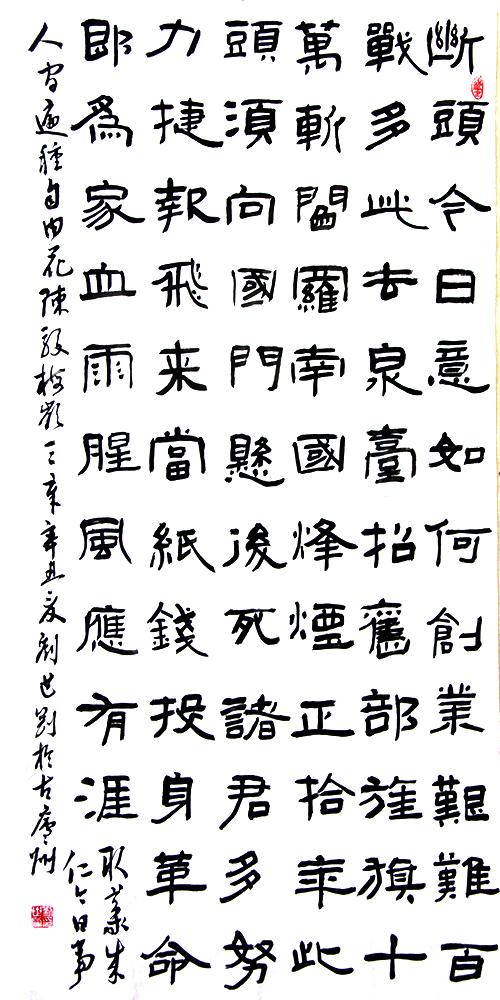 斷頭今日意如何創業艱難百
戰多此去泉臺招舊部旌旗十
萬斬閻羅南國烽煙正拾年此
頭須向國門懸後死諸君多努
力捷報飛来當紙錢投身革命
即為家血雨腥風應有涯
取義成
仁今日事
人間遍種自由花陳毅梅嶺三章辛丑夏於古廬州